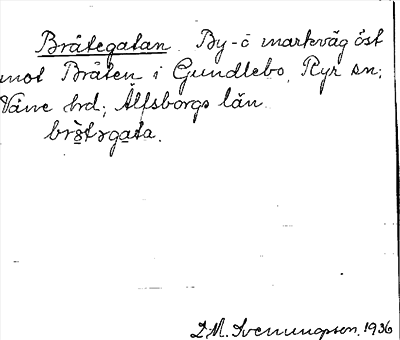 Bråtegatan. By-o markväg öst
mot Bråten i Gundlebo, Ryr sn;
Väne hrd; Älfsborgs län.
brò̱tɘga̱ta.
D.M. Svenungsson, 1936